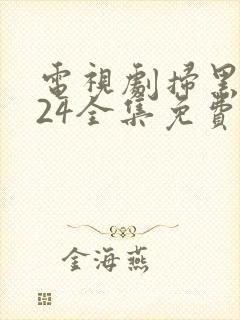 電視劇掃黑
24全集免費
金海燕